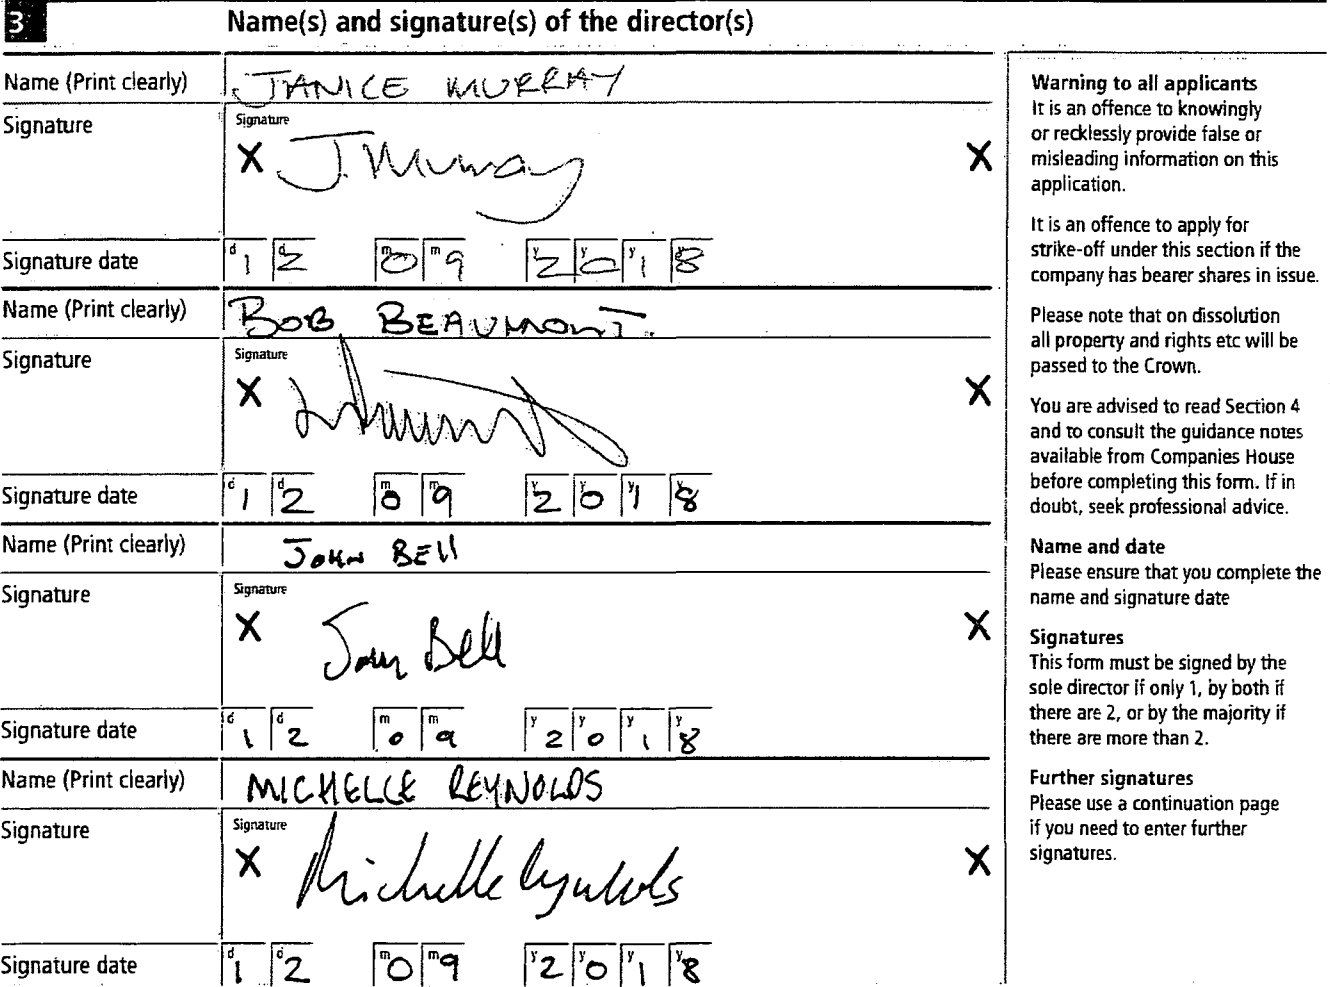 3 Name(s) and signature(s) of the director(s)
Name (Print clearly) JANICE MURRAY
Signature Signature
X J. Murray X
Signature date d1 d2 m0 m9 y2 y0 y1 y8
Name (Print clearly) BOB BEAUMONT.
Signature Signature
X X
Signature date d1 d2 m0 m9 y2 y0 y1 y8
Name (Print clearly) JOHN BELL
Signature Signature
X John Bell X
Signature date d1 d2 m0 m9 y2 y0 y1 y8
Name (Print clearly) MICHELLE REYNOLDS
Signature Signature
X Michelle Reynolds X
Signature date d1 d2 m0 m9 y2 y0 y1 y8
Warning to all applicants
It is an offence to knowingly
or recklessly provide false or
misleading information on this
application.
It is an offence to apply for
strike-off under this section if the
company has bearer shares in issue.
Please note that on dissolution
all property and rights etc will be
passed to the Crown.
You are advised to read Section 4
and to consult the guidance notes
available from Companies House
before completing this form. If in
doubt, seek professional advice.
Name and date
Please ensure that you complete the
name and signature date
Signatures
This form must be signed by the
sole director if only 1, by both if
there are 2, or by the majority if
there are more than 2.
Further signatures
Please use a continuation page
if you need to enter further
signatures.